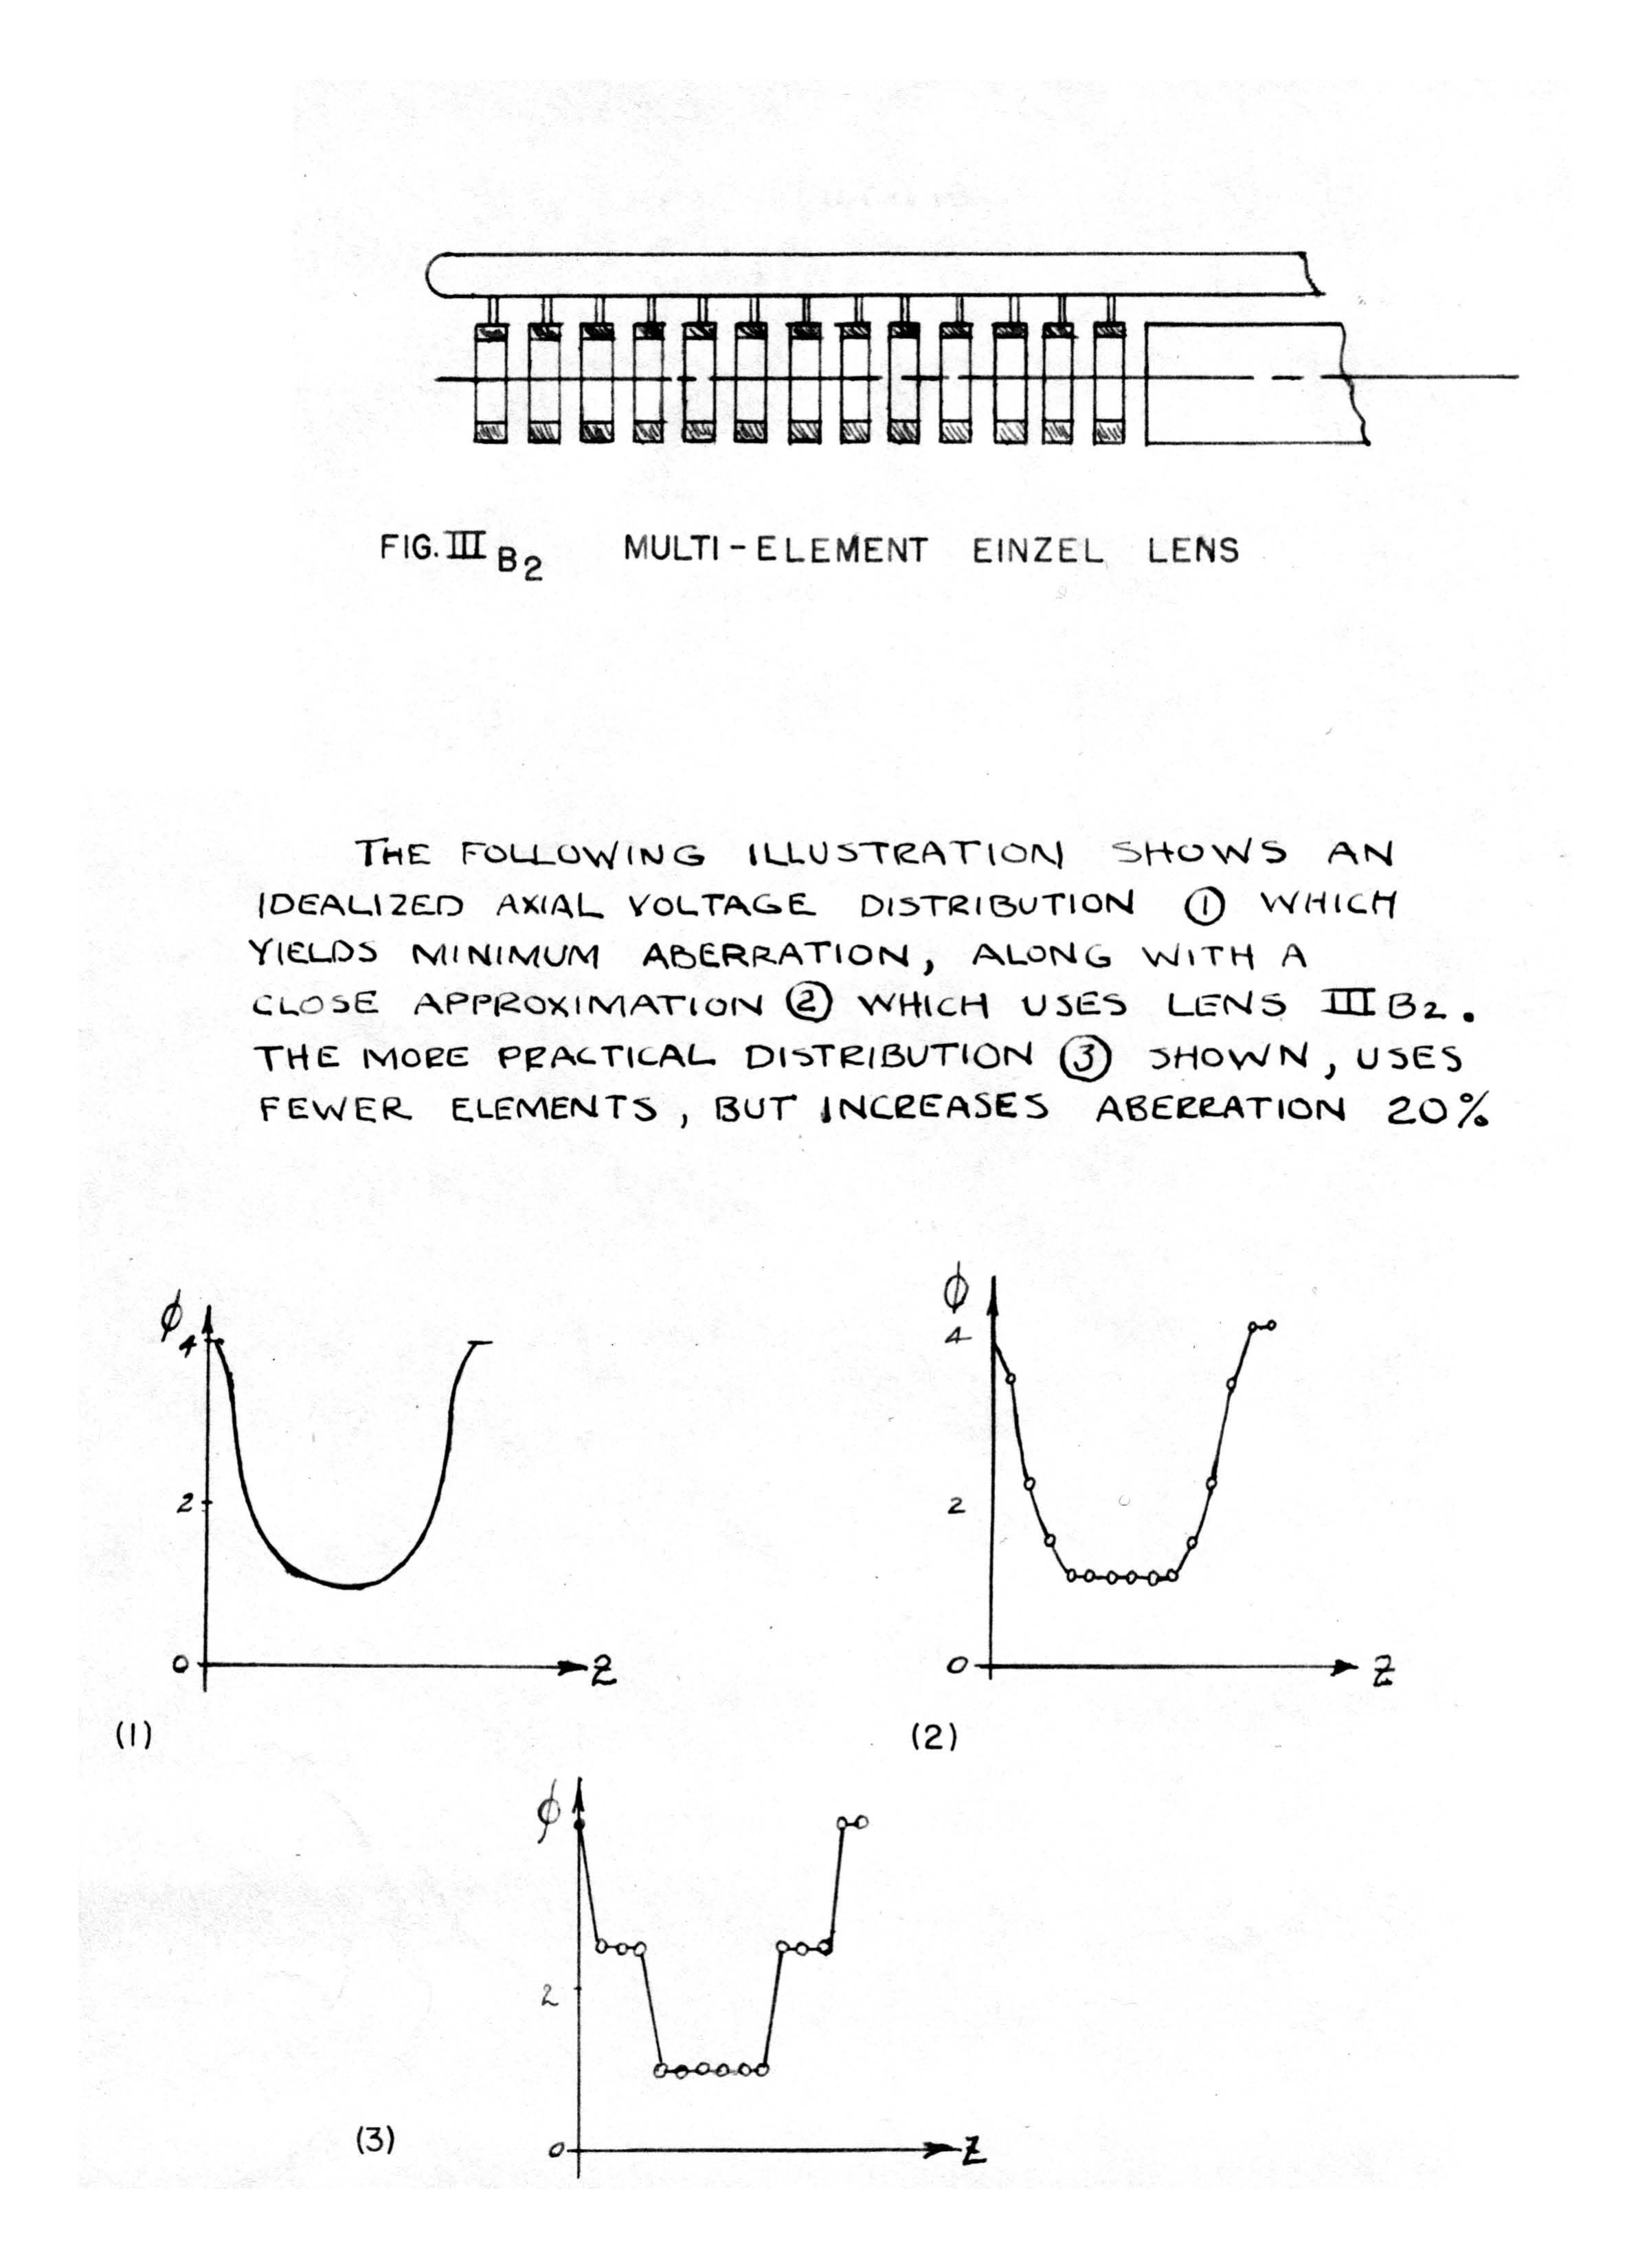 FIG. III B2 MULTI-ELEMENT EINZEL LENS
THE FOLLOWING ILLUSTRATION SHOWS AN
IDEALIZED AXIAL VOLTAGE DISTRIBUTION ① WHICH
YIELDS MINIMUM ABERRATION, ALONG WITH A
CLOSE APPROXIMATION ② WHICH USES LENS III B2.
THE MORE PRACTICAL DISTRIBUTION ③ SHOWN, USES
FEWER ELEMENTS, BUT INCREASES ABERRATION 20%
ϕ
4
2
0
Z
(1)
ϕ
4
2
0
Z
(2)
ϕ
2
0
Z
(3)